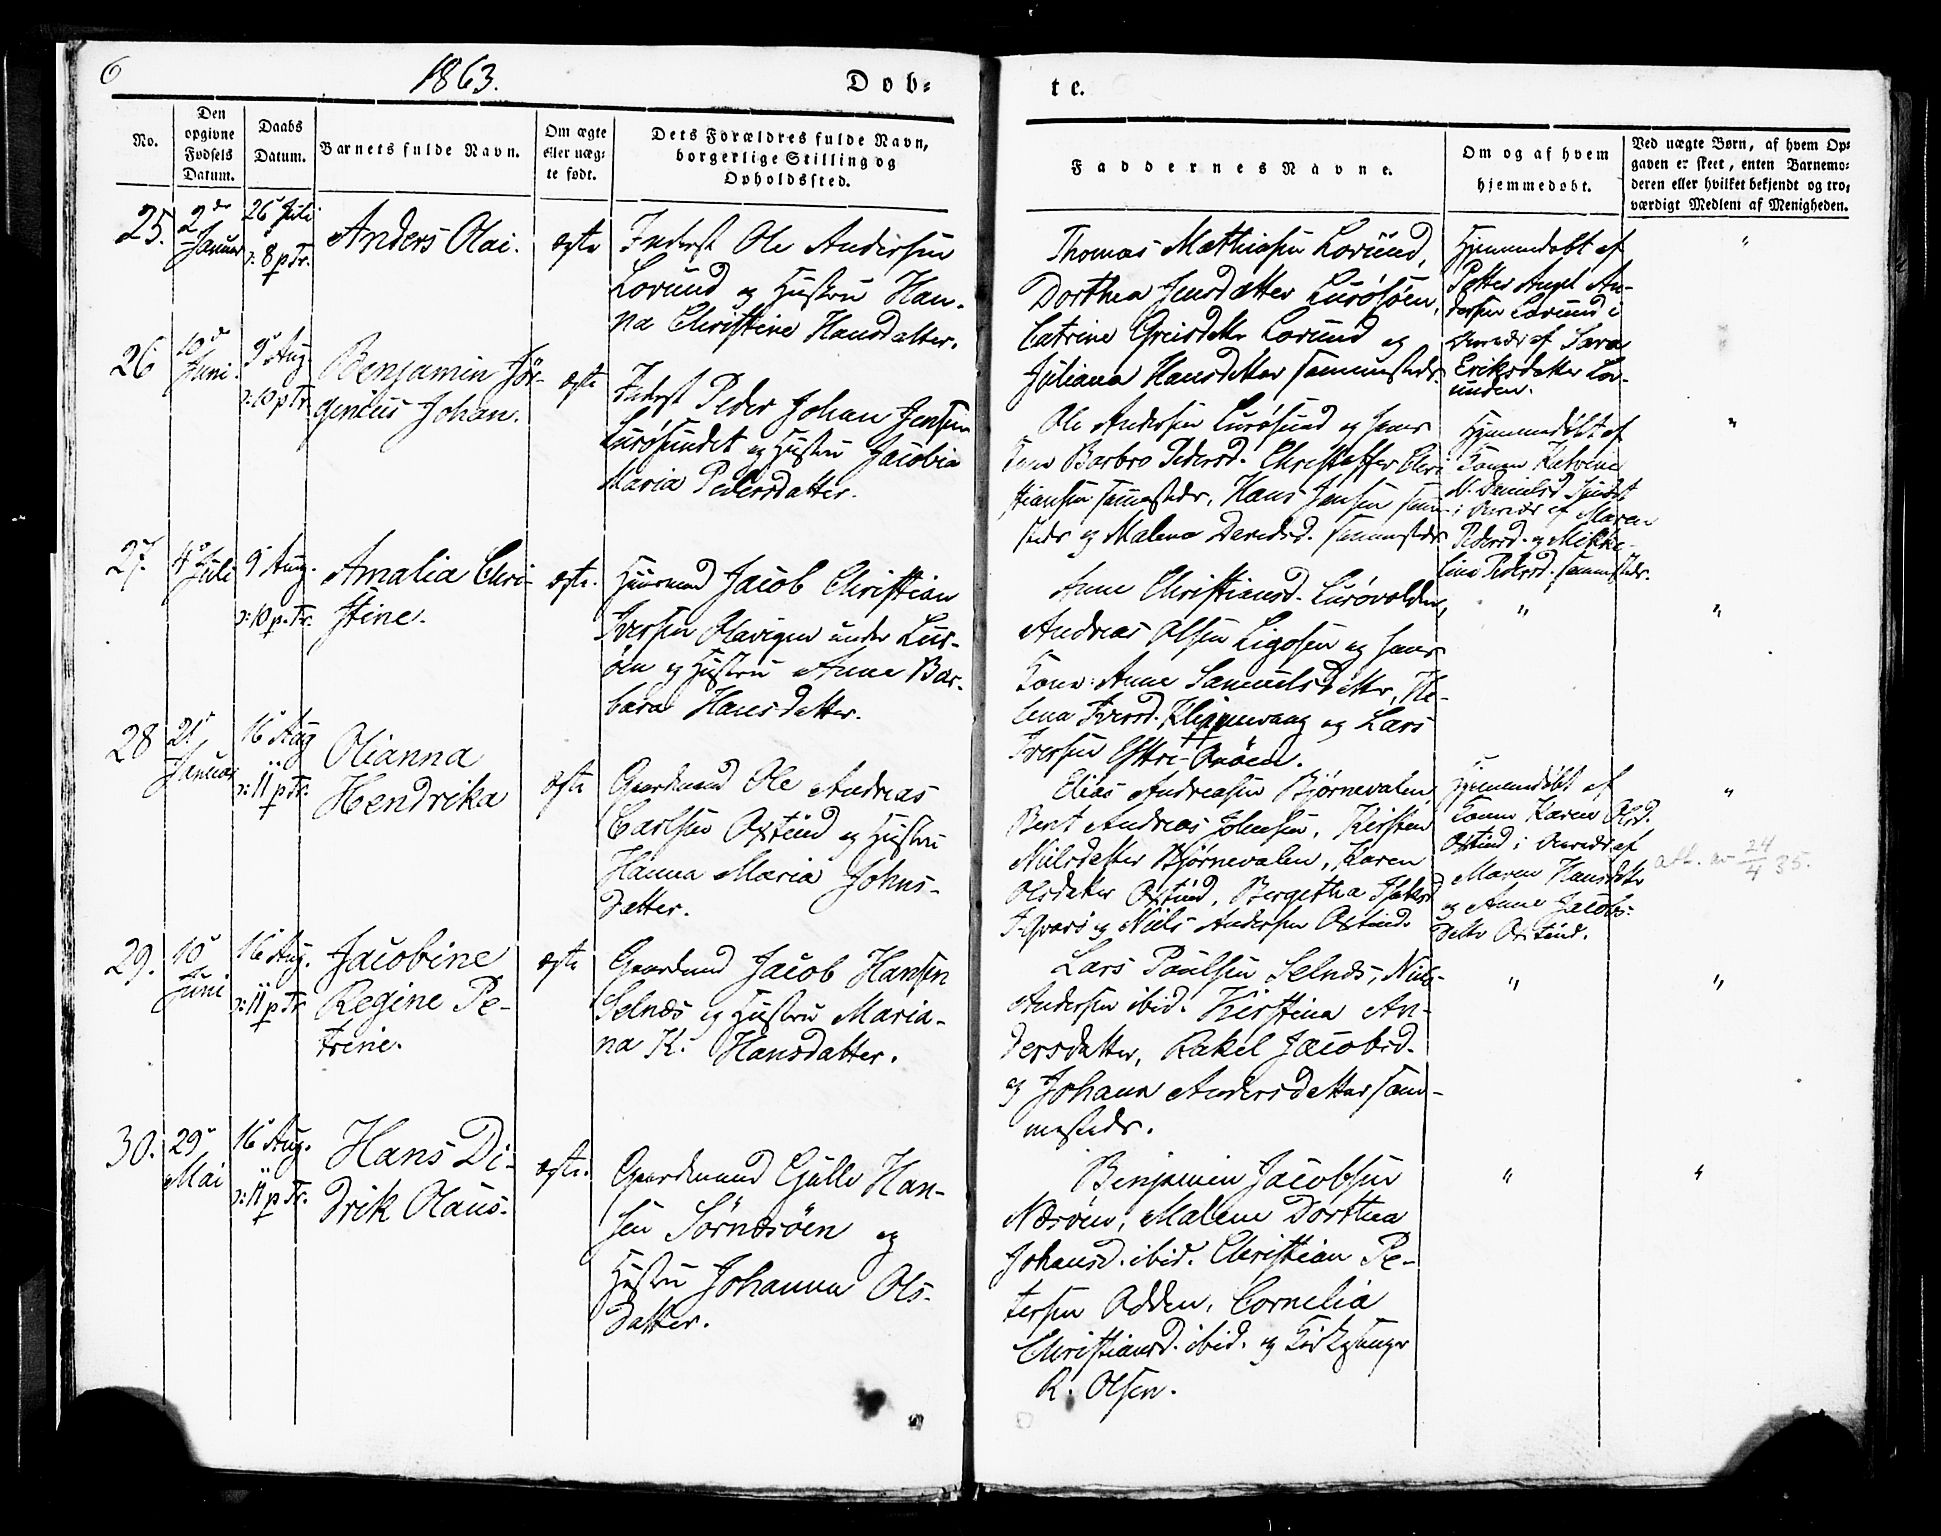 6
1863.
Dob=
te.
No.
Den
opgivne
Fødsels
Datum.
Daabs
Datum.
Barnets fulde Navn.
Om ægte
eller uæg-
te født.
Dets Forældres fulde Navn,
borgerlige Stilling og
Opholdssted.
Faddernes Navne.
Om og af hvem
hjemmedøbt.
Ved uægte Børn, af hvem Op-
gaven er skeet, enten Barnemo-
deren eller hvilket bekjendt og tro-
værdigt Medlem af Menigheden.
25.
2de
Januar
26 Juli
ɔ: 8 p Tr.
Anders Olai.
ægte
Inderst Ole Andersen
Lovund og Hustru Han-
na Christine Hansdatter.
Thomas Mathiasen Lovund,
Dorthea Jensdatter Lurøsøen,
Catrine Greisdatter Lovund og
Juliana Hansdatter sammesteds.
Hjemmedøbt af
Petter Angel An-
dersen Lovund i
Overvær af Sara
Eriksdatter Lov-
unden.
"
26
10de
Juni.
9 Aug.
ɔ: 10 p Tr.
Benjamin Jør-
gentius Johan.
ægte
Inderst Peder Johan Jensen
Lurøsundet og Hustru Jacobia
Maria Pedersdatter.
Ole Andersen Lurøsund og hans
Kone Barbro Pedersd. Christoffer Chri
stiansen sammesteds, Hans Jensen sam-
steds og Malena Davidsd. sammesteds
Hjemmedøbt af
Konen
i Overvær af Maren
Pedersd. og Mikke-
line Pedersd. sammesteds.
"
27.
4
Juli
9 Aug.
ɔ: 10 p. Tr.
Amalia Chri-
stine.
ægte.
Huusmand Jacob Christian
Iversen Olavigen under Lur-
øen og Hustru Anne Bar-
bara Hansdatter.
Anne Christiansd. Lurøvolden,
Andreas Olsen Ligosen og hans
Kone: Anne Samuelsdatter, He-
lena Iversd. Klippenvaag og Lars
Iversen
"
"
28
21
Januar
16 Aug
ɔ: 11 p Tr.
Olianna
Hendrika
ægte
Gaardmand Ole Andreas
Carlsen Oxtind og Hustru
Hanna Maria Johns-
datter.
Elias Andreasen Bjørnevalen,
Bent Andreas Johnsen, Kirsten
Nielsdatter Bjørnevalen, Karen
Olsdatter Oxtind, Bergitha
og Niels Andersen Oxtind.
Hjemmedøbt af
Konen Karen Olsd.
Oxtind i Overvær af
Maren Hansdatter
og Anne Jacobs-
datter Oxtind.
"
att. av 24/4 35.
29.
10
Juni
16 Aug.
ɔ: 11 p Tr
Jacobine
Regine Pe-
trine.
ægte
Gaardmand Jacob Hansen
Selnæs og Hustru Maria-
na K. Hansdatter.
Lars Paulsen Selnæs, Niels
Andersen ibid. Kirstina An-
dersdatter, Rakel Jacobsd.
og Johana Andersdatter sam-
mesteds.
"
"
30.
29
Mai
16 Aug.
ɔ: 11 p Tr.
Hans Di-
drik Olaus.
ægte.
Gaardmand Gulle Han-
sen Sørnæsøen og
Hustru Johanna Ols-
datter.
Benjamin Jacobsen
Næsøen, Malene Dorthea
Johansd. ibid. Christian Pe-
tersen Odden, Cornelia
Christiansd. ibid. og Kirkesanger
R. Olsen.
"
"